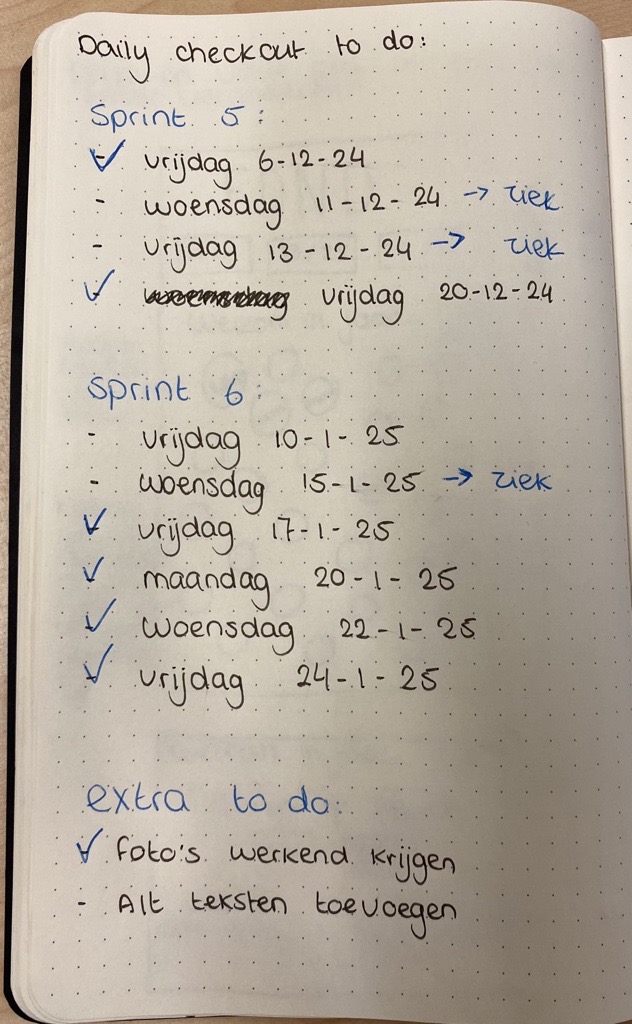 Daily checkout to do:
Sprint 5:
✓ vrijdag 6-12-24
- woensdag 11-12-24 → ziek
- vrijdag 13-12-24 → ziek
✓ woensdag vrijdag 20-12-24
Sprint 6:
- vrijdag 10-1-25
- woensdag 15-1-25 → ziek
✓ vrijdag 17-1-25
✓ maandag 20-1-25
✓ woensdag 22-1-25
✓ vrijdag 24-1-25
extra to do:
✓ foto's werkend krijgen
- Alt teksten toevoegen